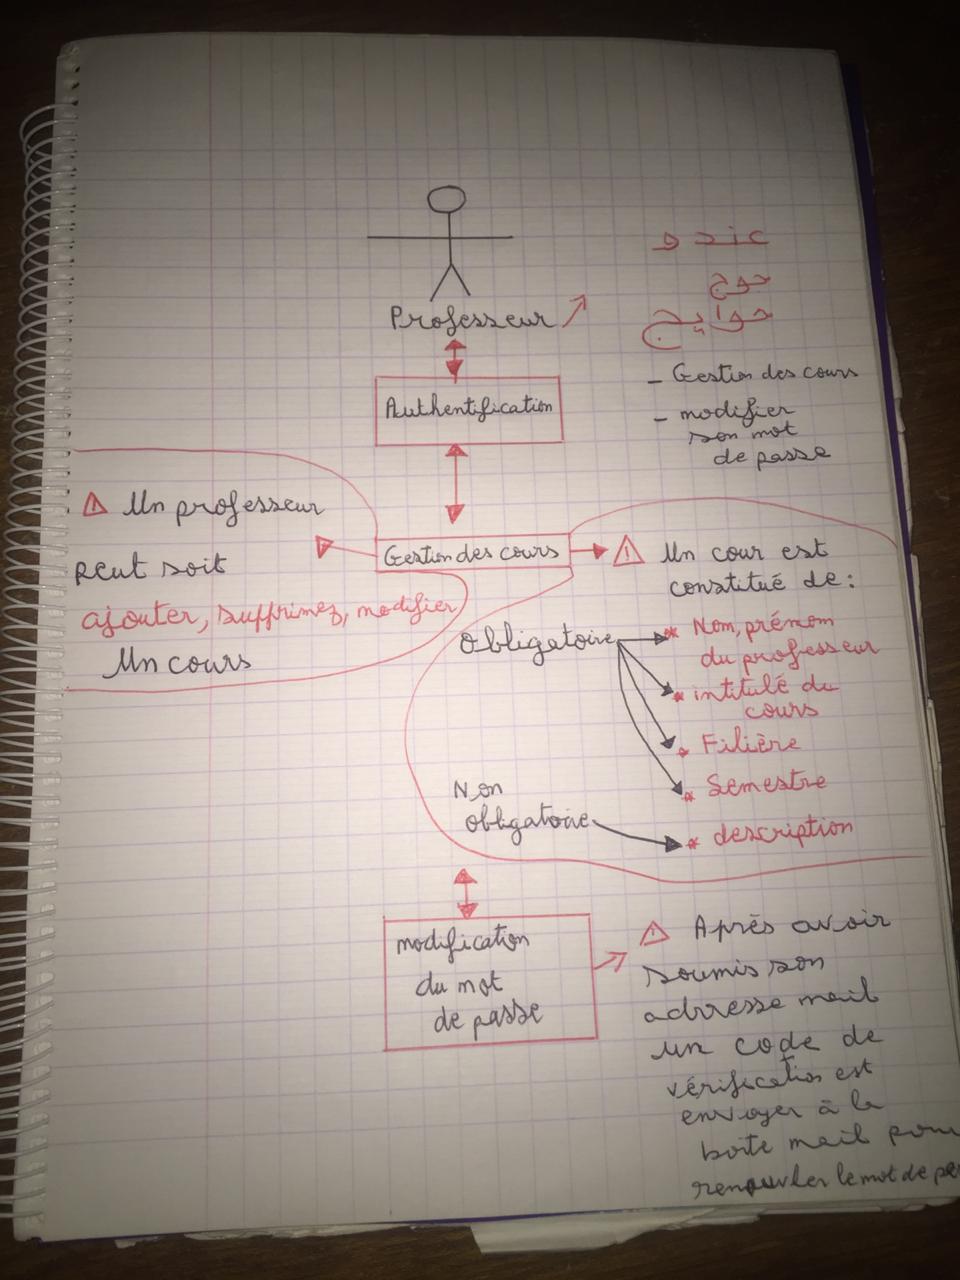 عندو
جوج
حوايج
Professeur
- Gestion des cours
- modifier
son mot
de passe
Authentification
Un professeur
peut soit
ajouter, supprimez, modifier
Un cours
Gestion des cours
Un cour est
constitué de :
Obligatoire
* Nom, prénom
du professeur
* intitulé du
cours
* Filière
* Semestre
Non
obligatoire
* description
modification
du mot
de passe
Après avoir
soumis son
adresse mail
un code de
vérification est
envoyer à la
boîte mail pour
le mot de